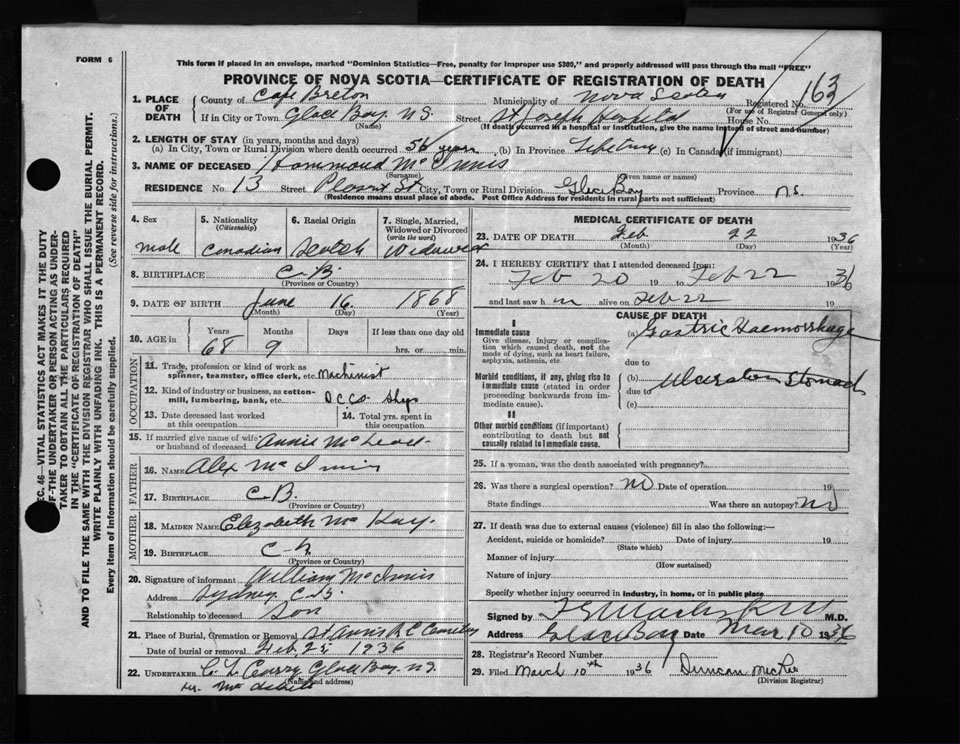 FORM 6
This form if placed in an envelope, marked "Dominion Statistics—Free, penalty for improper use $300," and properly addressed will pass through the mail "FREE"
PROVINCE OF NOVA SCOTIA—CERTIFICATE OF REGISTRATION OF DEATH
163
1. PLACE OF DEATH
County of Cape Breton Municipality of Nova Scotia Registered No.
(For use of Registrar General only)
If in City or Town Glace Bay. N.S. Street St Joseph House No.
(Name) (If death occurred in a hospital or institution, give the name instead of street and number)
2. LENGTH OF STAY (in years, months and days)
(a) In City, Town or Rural Division where death occurred 56 years (b) In Province (c) In Canada (if immigrant)
3. NAME OF DECEASED Hammond McInnis
(Surname) (Given name or names)
RESIDENCE No. 13 Street Plesant St City, Town or Rural Division Glace Bay Province N.S.
(Residence means usual place of abode. Post Office Address for residents in rural parts not sufficient)
4. Sex
male
5. Nationality
(Citizenship)
Canadian
6. Racial Origin
Scotch
7. Single, Married, Widowed or Divorced
(write the word)
Widowed
8. BIRTHPLACE C.B.
(Province or Country)
9. DATE OF BIRTH June 16. 1868
(Month) (Day) (Year)
10. AGE in
Years Months Days If less than one day old
68 9 hrs. or min.
OCCUPATION
11. Trade, profession or kind of work as
spinner, teamster, office clerk, etc. Machinist
12. Kind of industry or business, as cotton-
mill, lumbering, bank, etc. D.C.Co. Shops
13. Date deceased last worked at this occupation
14. Total yrs. spent in this occupation
15. If married give name of wife or husband of deceased Annie McLeod
FATHER
16. NAME Alex McInnis
17. BIRTHPLACE C.B.
(Province or Country)
MOTHER
18. MAIDEN NAME Elizabeth McKay.
19. BIRTHPLACE
(Province or Country)
20. Signature of informant William McInnis
Address Sydney C.B.
Relationship to deceased Son
21. Place of Burial, Cremation or Removal St Annis R C Cemetery
Date of burial or removal Feb. 25 1936
22. UNDERTAKER C. L. Curry Glace Bay. N.S.
(Name and address)
MEDICAL CERTIFICATE OF DEATH
23. DATE OF DEATH Feb 22 1936
(Month) (Day) (Year)
24. I HEREBY CERTIFY that I attended deceased from:
Feb 20 19 to Feb 22 1936
and last saw him alive on Feb 22 19
CAUSE OF DEATH
I
Immediate cause
Give disease, injury or complication which caused death, not the mode of dying, such as heart failure, asphyxia, asthenia, etc.
(a) Gastric Haemorrhage
due to
Morbid conditions, if any, giving rise to immediate cause (stated in order proceeding backwards from immediate cause).
(b) Ulceration Stomach
due to
(c)
II
Other morbid conditions (if important) contributing to death but not causally related to immediate cause.
25. If a woman, was the death associated with pregnancy?
26. Was there a surgical operation? No Date of operation 19
State findings Was there an autopsy? No
27. If death was due to external causes (violence) fill in also the following:—
Accident, suicide or homicide? Date of injury 19
(State which)
Manner of injury
(How sustained)
Nature of injury
Specify whether injury occurred in industry, in home, or in public place
Signed by M.D.
Address Glace Bay Date Mar 10 1936
28. Registrar's Record Number
29. Filed March 10th 1936 Duncan McRae
(Division Registrar)
SEC. 46—VITAL STATISTICS ACT MAKES IT THE DUTY
OF THE UNDERTAKER OR PERSON ACTING AS UNDER-
TAKER TO OBTAIN ALL THE PARTICULARS REQUIRED
IN THE "CERTIFICATE OF REGISTRATION OF DEATH"
AND TO FILE THE SAME WITH THE DIVISION REGISTRAR WHO SHALL ISSUE THE BURIAL PERMIT.
WRITE PLAINLY WITH UNFADING INK. THIS IS A PERMANENT RECORD.
Every item of information should be carefully supplied. (See reverse side for instructions.)